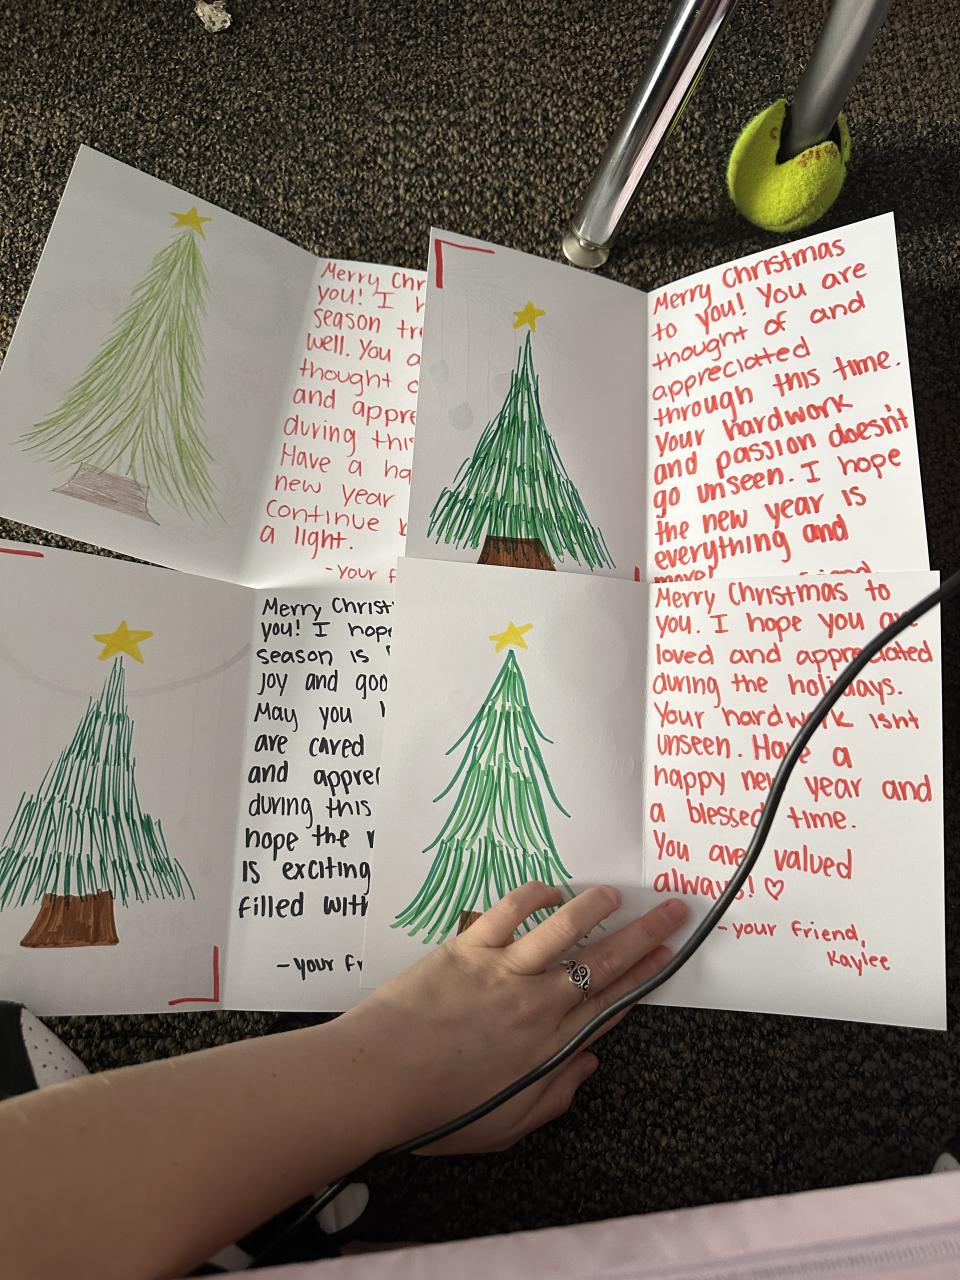 Merry Chr
you! I h
season tre
well. You a
thought o
and appre
during this
Have a ha
new year
continue
a light.
-your f
Merry Christmas
to you! You are
thought of and
appreciated
through this time.
Your hardwork
and passion doesn't
go unseen. I hope
the new year is
everything and
more!
friend
Merry Christ
you! I hope
season is
joy and goo
May you
are cared
and apprec
during this
hope the
is exciting
filled with
-your fr
Merry Christmas to
you. I hope you are
loved and appreciated
during the holidays.
Your hardwork isnt
unseen. Have a
happy new year and
a blessed time.
You are valued
always! ♡
-your friend,
Kaylee